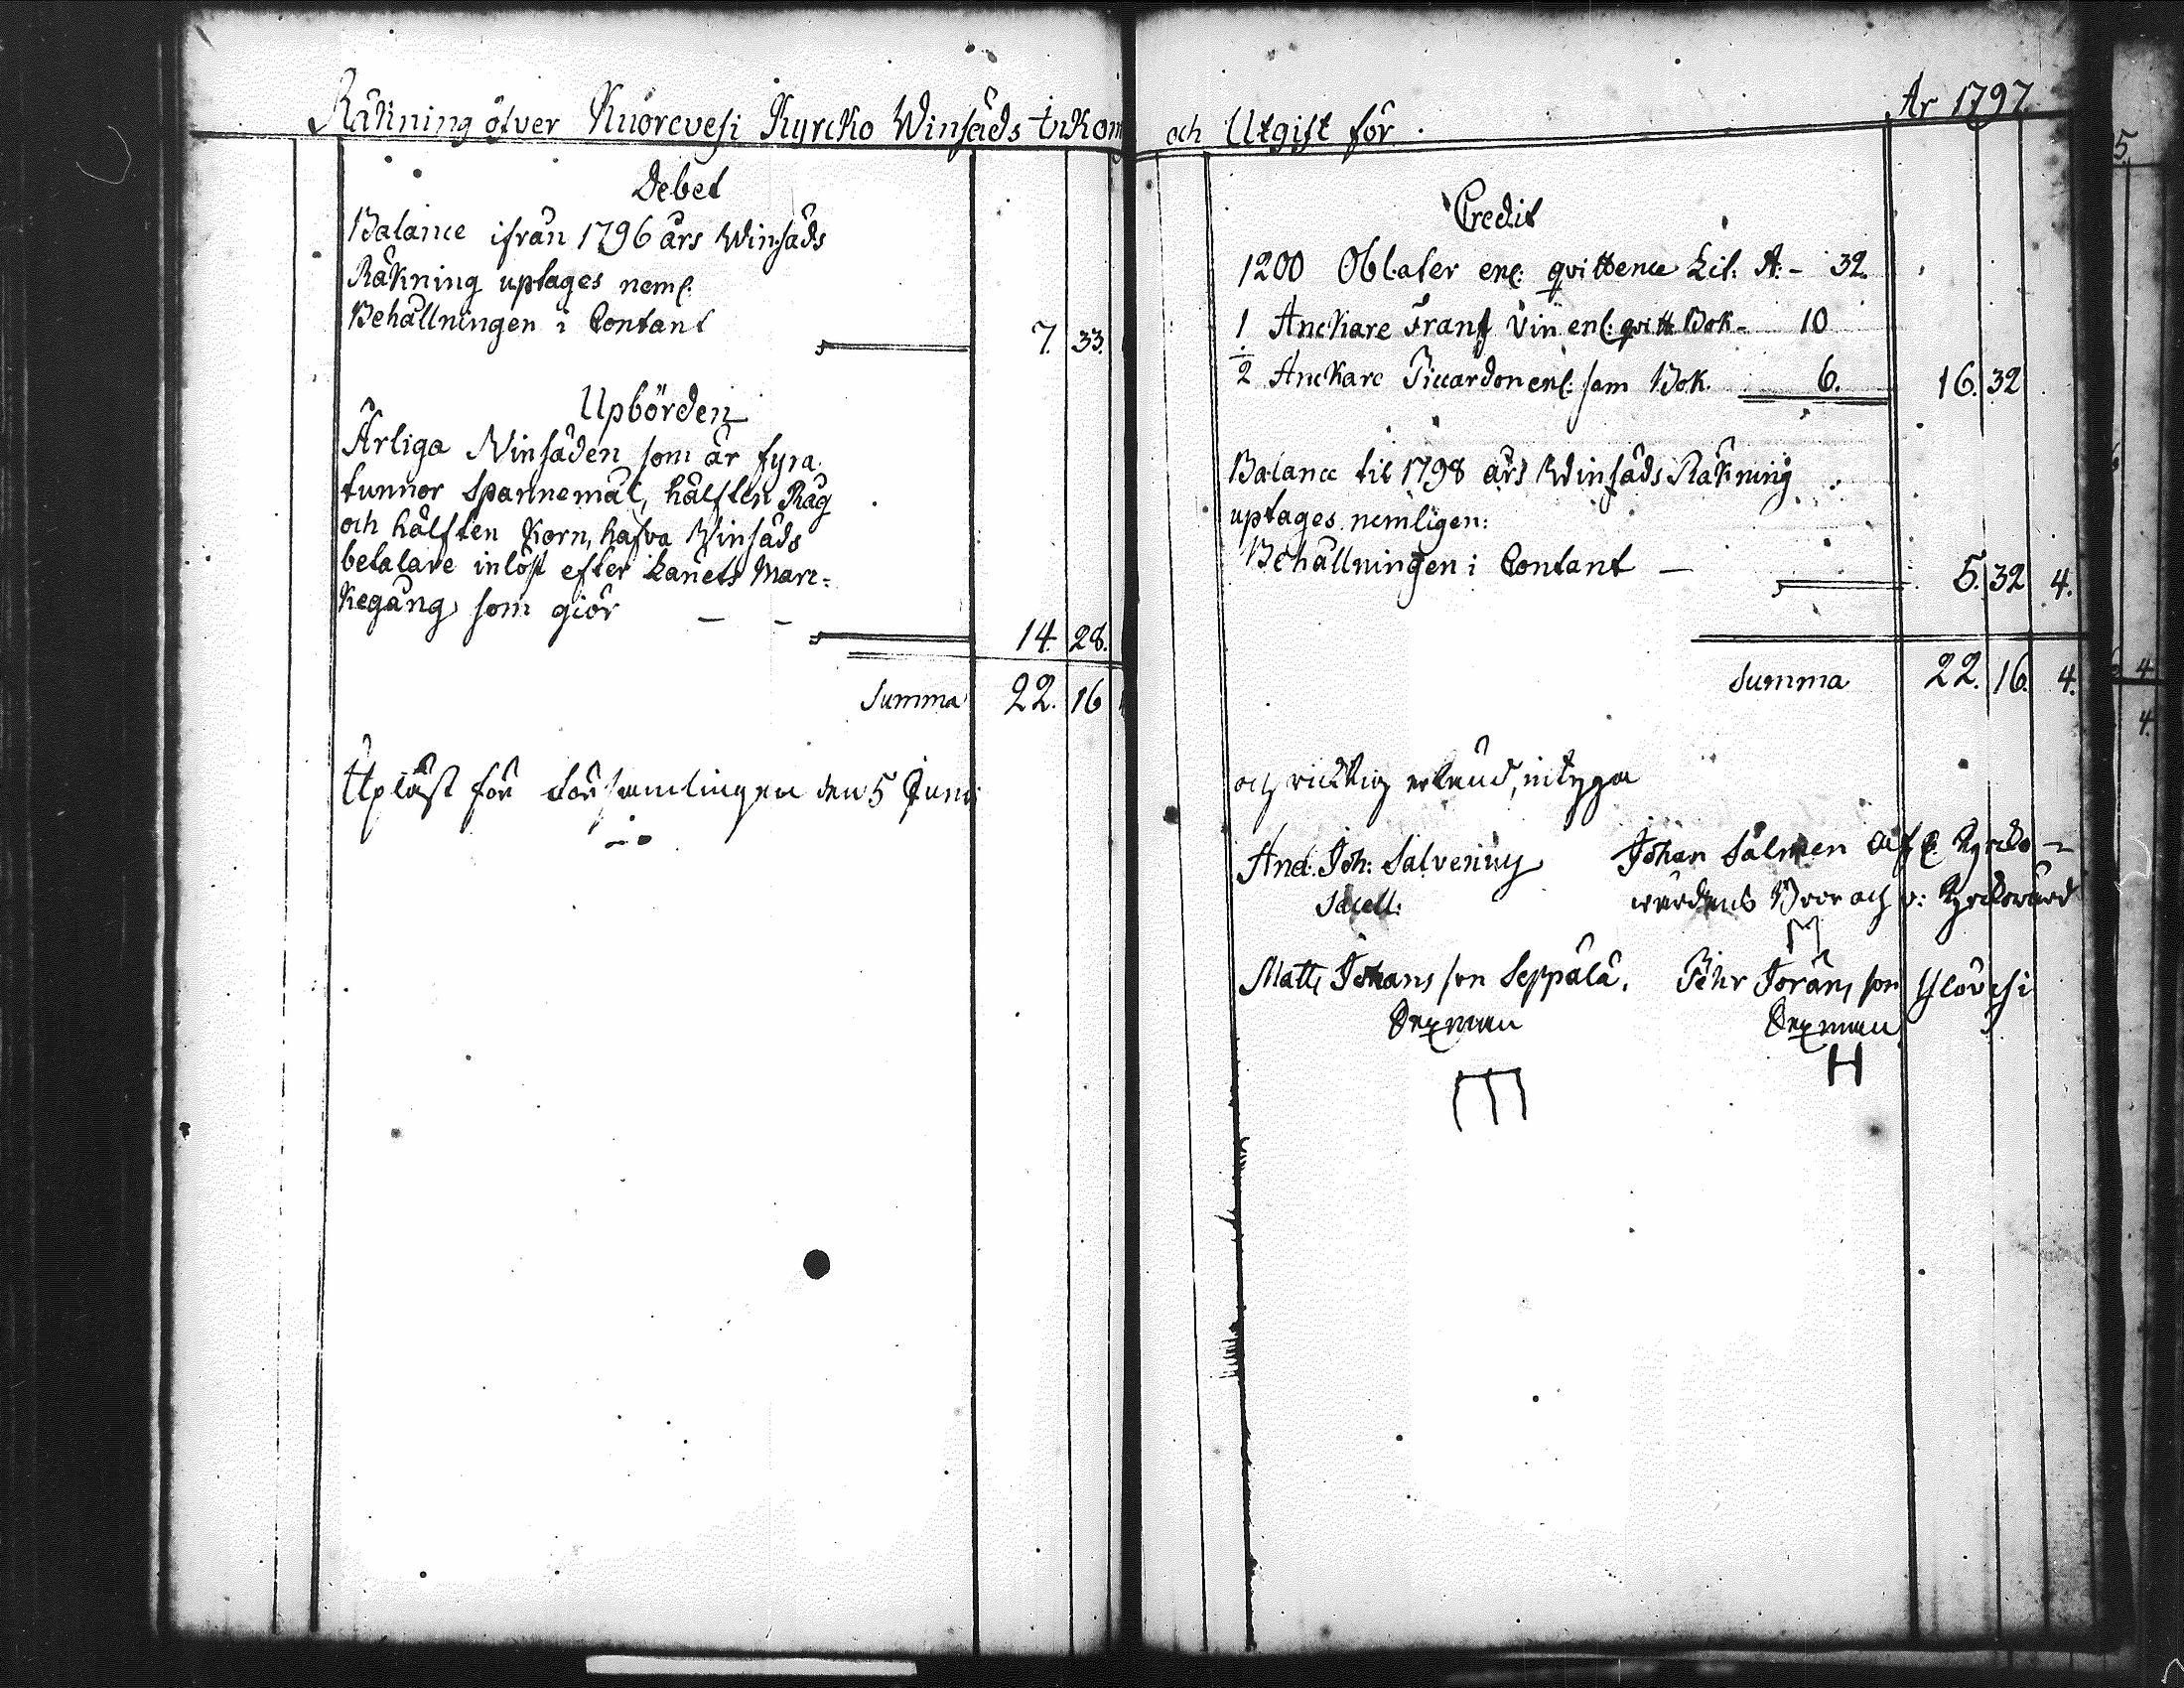 Räkning öfver Kuorevesi Kyrcko Winsäds Inkom
Debet
Balance ifrån 1796 års Winsäds
Räkning uptages neml:
Behållningen i Contant 7. 33.
Upbörden
Årliga Vinsäden som är fyra
tunnor Spannemål, hälften Råg
och hälften Korn, hafva Winsäds
betalare inlöst efter Länets Marc-
kegång, som giör - - 14. 28.
Summa 22. 16
Upläst för Församlingen den 5 Junii
och Utgift för År 1797
Credit
1200 Oblater enl: qvittence Lit. A: - 32.
1 Anckare Fransk Vin enl: qvitt. Bok - 10
1/2 Anckare Piccardon enl: sam Bok. 6. 16. 32
Balance til 1798 års Winsäds Räkning
uptages nemligen:
Behållningen i Contant - 5. 32 4.
Summa 22. 16. 4.
och ricktig erkänd, intyga
And: Joh: Salvenius
Sacell:
Johan Salmen Kyrcko-
värdens Bror och v: Kyrckovärd
Matts Johans son Seppälä.
Sexman
Pehr Jörans son Ylövesi
Sexman
H
5
4
4.